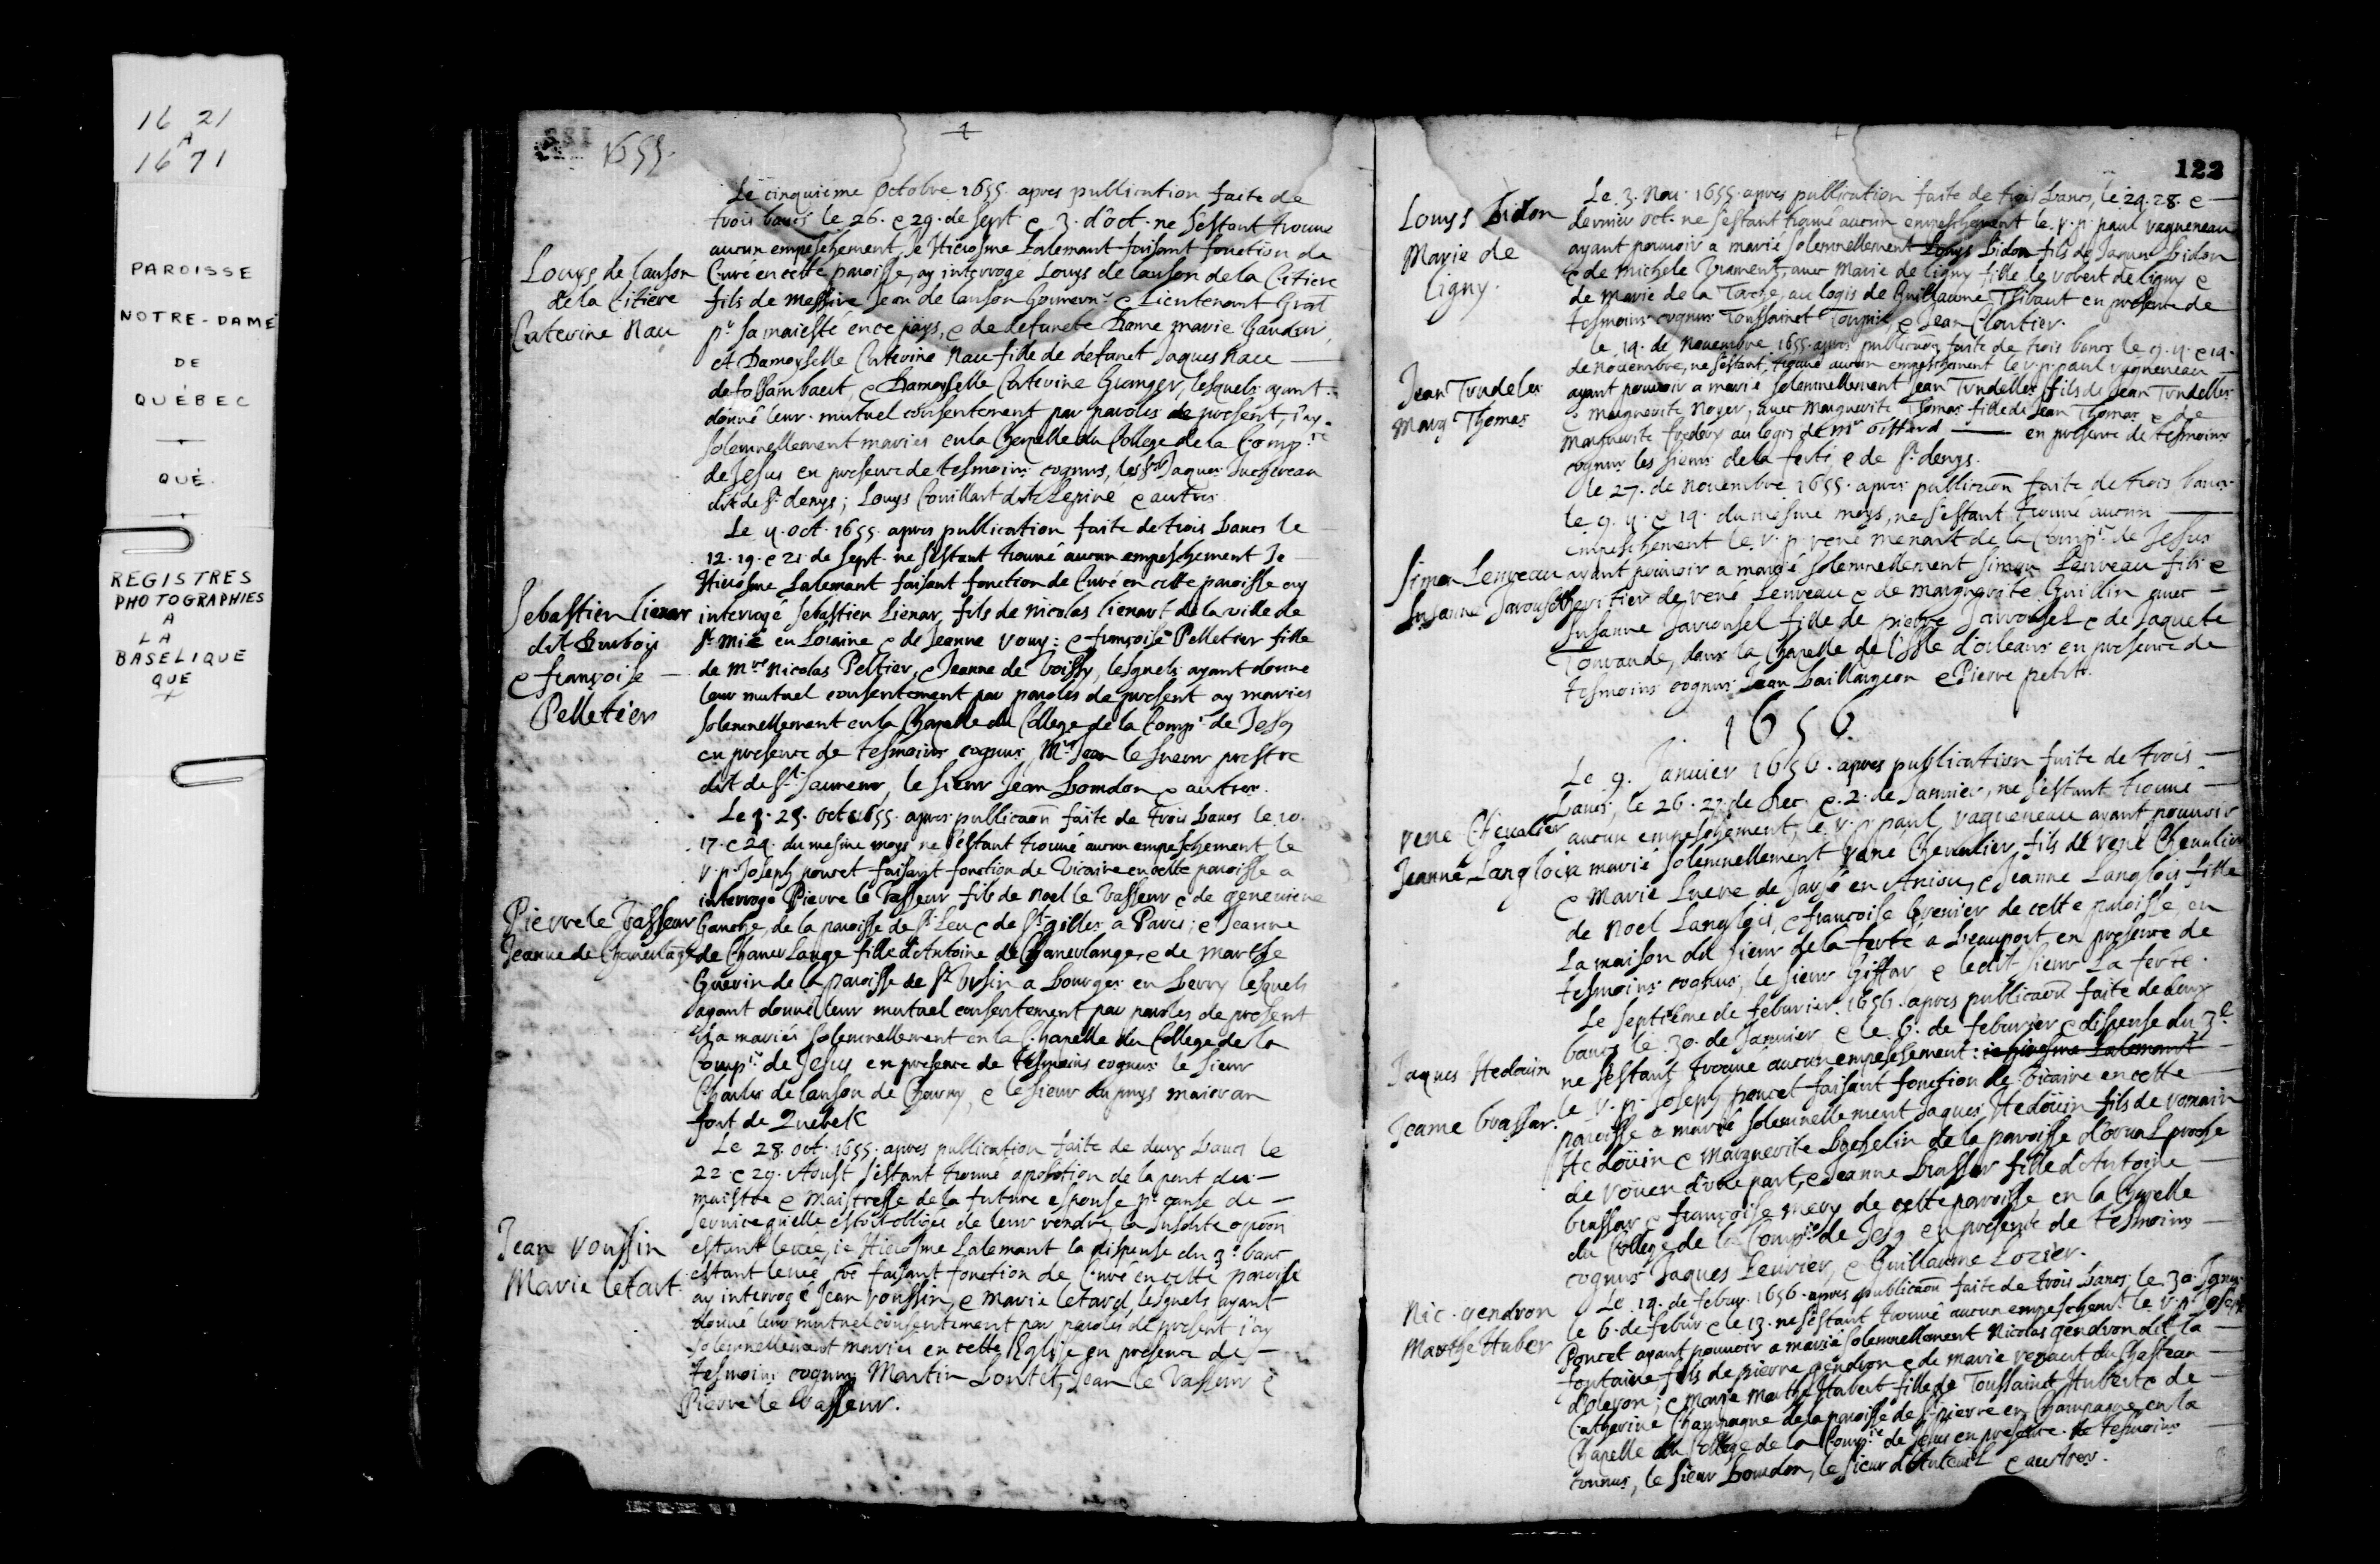 16 21
A
16 71
PAROISSE
NOTRE-DAME
DE
QUÉBEC
QUÉ.
REGISTRES
PHOTOGRAPHIES
A
LA
BASELIQUE
QUE
1655.
Le cinquieme octobre 1655. apres publication faite de
trois bancs le 26. e 29. de sept. e 3. d'oct. ne s'estant trouué
aucun empeschement, Je Hierosme Lalemant faisant fonction de
Louys de Lauson
Curé en cette paroisse, ay interrogé Louys de lauson de la Citiere
de la Citiere
fils de messire Jean de lauson Gouuern.r e Lieutenant Gnal
Caterine Nau
p.r sa maiesté en ce pays, e de defuncte Dame marie Gaudar,
et Damoyselle Caterine Nau fille de defunct Jaques Nau
de fossambaut, e Damoyselle Caterine Granger, lesquels ayant
donné leur mutuel consentement par paroles de present, i'ay
solemnellement mariés en la Chapelle du College de la Comp.ie
de Jesus en presence de tesmoins cognus, les Srs Jaques Juchereau
dit de St. denys; Louys Couillart dit Lepiné e autres.
Le 4. oct. 1655. apres publication faite de trois bancs le
12. 19. e 21 de sept. ne s'estant trouué aucun empeschement Je
Hierosme Lalemant faisant fonction de Curé en cette paroisse ay
Sebastien lienar
interrogé sebastien Lienar, fils de nicolas lienart de la ville de
dit Durbois
St. mié en Loraine e de Jeanne vouy: e françoise Pelletier fille
e françoise
de m.re Nicolas Peltier, e Jeanne de Voissy, lesquels ayant donné
leur mutuel consentement par paroles de present ay mariés
Pelletier
solemnellement en la Chapelle du College de la Comp.ie de Jesus
en presence de tesmoins cognus, M.re Jean le sueur prestre
dit de St. sauueur, le sieur Jean bourdon e autres.
Le 25. oct 1655. apres publicaon faite de trois bancs le 10.
17. e 24. du mesme moys ne s'estant trouué aucun empeschement le
r. p. Joseph poncet faisant fonction de Vicaire en cette paroisse a
interrogé Pierre le Vasseur, fils de noel le vasseur e de geneuieue
Pierre le Vasseur
Gauche, de la paroisse de St. Leu e de St. gilles a Paris; e Jeanne
Jeanne de Chauerlange
de Chauerlange fille d'Antoine de Chauerlange, e de marthe
Guerin de la paroisse de St. Ursin a bourges en berry lesquels
ayant donné leur mutuel consentement par paroles de present
il a mariés solemnellement en la Chapelle du College de la
Comp.ie de Jesus en presence de tesmoins cognus le sieur
Charles de lauson de Charny, e le sieur du puys maior au
fort de Quebek
Le 28. oct. 1655. apres publication faite de deux bancs le
22 e 29. Aoust s'estant trouué de la part du
maistre e maistresse de la future espouse p.r cause de
seruice qu'elle estoit obligée de leur rendre, la susdite
Jean Voussin
estant leuée, ie Hierosme Lalemant la dispense du 3.e banc
Marie letart
estant leuée, faisant fonction de Curé en cette paroisse
ay interrogé Jean Voussin, e marie letard, lesquels ayant
donné leur mutuel consentement par paroles de present i'ay
solemnellement mariés en cette Eglise en presence de
tesmoins cognus Martin boutet, Jean le Vasseur e
Pierre le Vasseur.
122
Le 3. Nou. 1655. apres publication faite de trois bancs, le 24. 28. e
Louys bidon
dernier oct. ne s'estant trouué aucun empeschement le r. p. paul ragueneau
ayant pouuoir a marié solemnellement Louys bidon fils de Jaques bidon
Marie de
e de michele Drament, auec Marie de ligny fille de robert de ligny e
Ligny.
de marie de la Tarche, au logis de Guillaume Thibaut en presence de
tesmoins cognus Toussainct Toupin, e Jean Cloutier.
le 19. de Nouembre 1655. apres publication faite de trois bancs le 9. 11. e 14.
de nouembre, ne s'estant trouué aucun empeschement le r. p. paul ragueneau
Jean Trudeles
ayant pouuoir a marié solemnellement Jean Trudelles fils de Jean Trudelles
Marg Thomas
e marguerite Noyer, auec marguerite Thomas fille de Jean Thomas e de
Marguerite fredery au logis de mr Giffard en presence de tesmoins
cognus les sieurs de la ferté e de St. denys.
le 27. de Nouembre 1655. apres publicaon faite de trois bancs
le 9. 11. e 14. du mesme moys, ne s'estant trouué aucun
empeschement le r. p. rené menart de la Comp.ie de Jesus
Simon Lenreau
ayant pouuoir a marié solemnellement Simon Lereau fils e
Susanne Jarousel
heritier de rené Lereau e de marguerite Guillin auec
Susanne Jarousel fille de pierre Jarousel e de Jaquete
Touraude, dans la Chapelle de l'isle d'orleans en presence de
tesmoins cognus Jean baillargeon e Pierre petit.
1656.
Le 9. Januier 1656. apres publication faite de trois
bancs, le 26. 27. de Dec. e 2. de Januier, ne s'estant trouué
rené Cheualier
aucun empeschement, le r. p. paul ragueneau ayant pouuoir
Jeanne Langlois
a marié solemnellement rené Cheualier, fils de rené Cheualier
e Marie Luere de Jarsé en Aniou, e Jeanne Langlois fille
de Noel Langlois, e françoise Grenier de cette paroisse, en
La maison du sieur de la ferté a beauport en presence de
tesmoins cognus, le sieur Giffar e ledit sieur La ferté.
Le septieme de feburier 1656. apres publicaon faite de deux
bancs le 30. de Januier, e le 6. de feburier e dispense du 3.e
Jaques Hedouin
ne s'estant trouué aucun empeschement: ie hierosme Lalemant
le r. p. Joseph poncet faisant fonction de Vicaire en cette
Jeanne brassar.
paroisse a marié solemnellement Jaques Hedoüin fils de romain
Hedoüin e marguerite bochelin de la paroisse
de roüen d'vne part, e Jeanne brassar fille d'Antoine
brassar e françoise mery de cette paroisse en la Chapelle
du College de la Comp.ie de Jesus en presence de tesmoins
cognus Jaques Leurier, e Guillaume Lozier.
Le 19. de febur. 1656. apres publicaon faite de trois bancs, le 30. Janu.
Nic. gendron
le 6. de febur e le 13. ne s'estant trouué aucun empeschemt. le r. p. Joseph
Marthe Huber
Poncet ayant pouuoir a marié solemnellement Nicolas gendron dit la
fontaine fils de pierre gendron e de marie du Chasteau
d'oleron; e Marie marthe Hubert fille de Toussainct Hubert e de
Catherine Champagne de la paroisse de St. pierre en Champagne en la
Chapelle du College de la Comp.ie de Jesus en presence de tesmoins
connus, le sieur bourdon, le sieur d'Auteuil e autres.